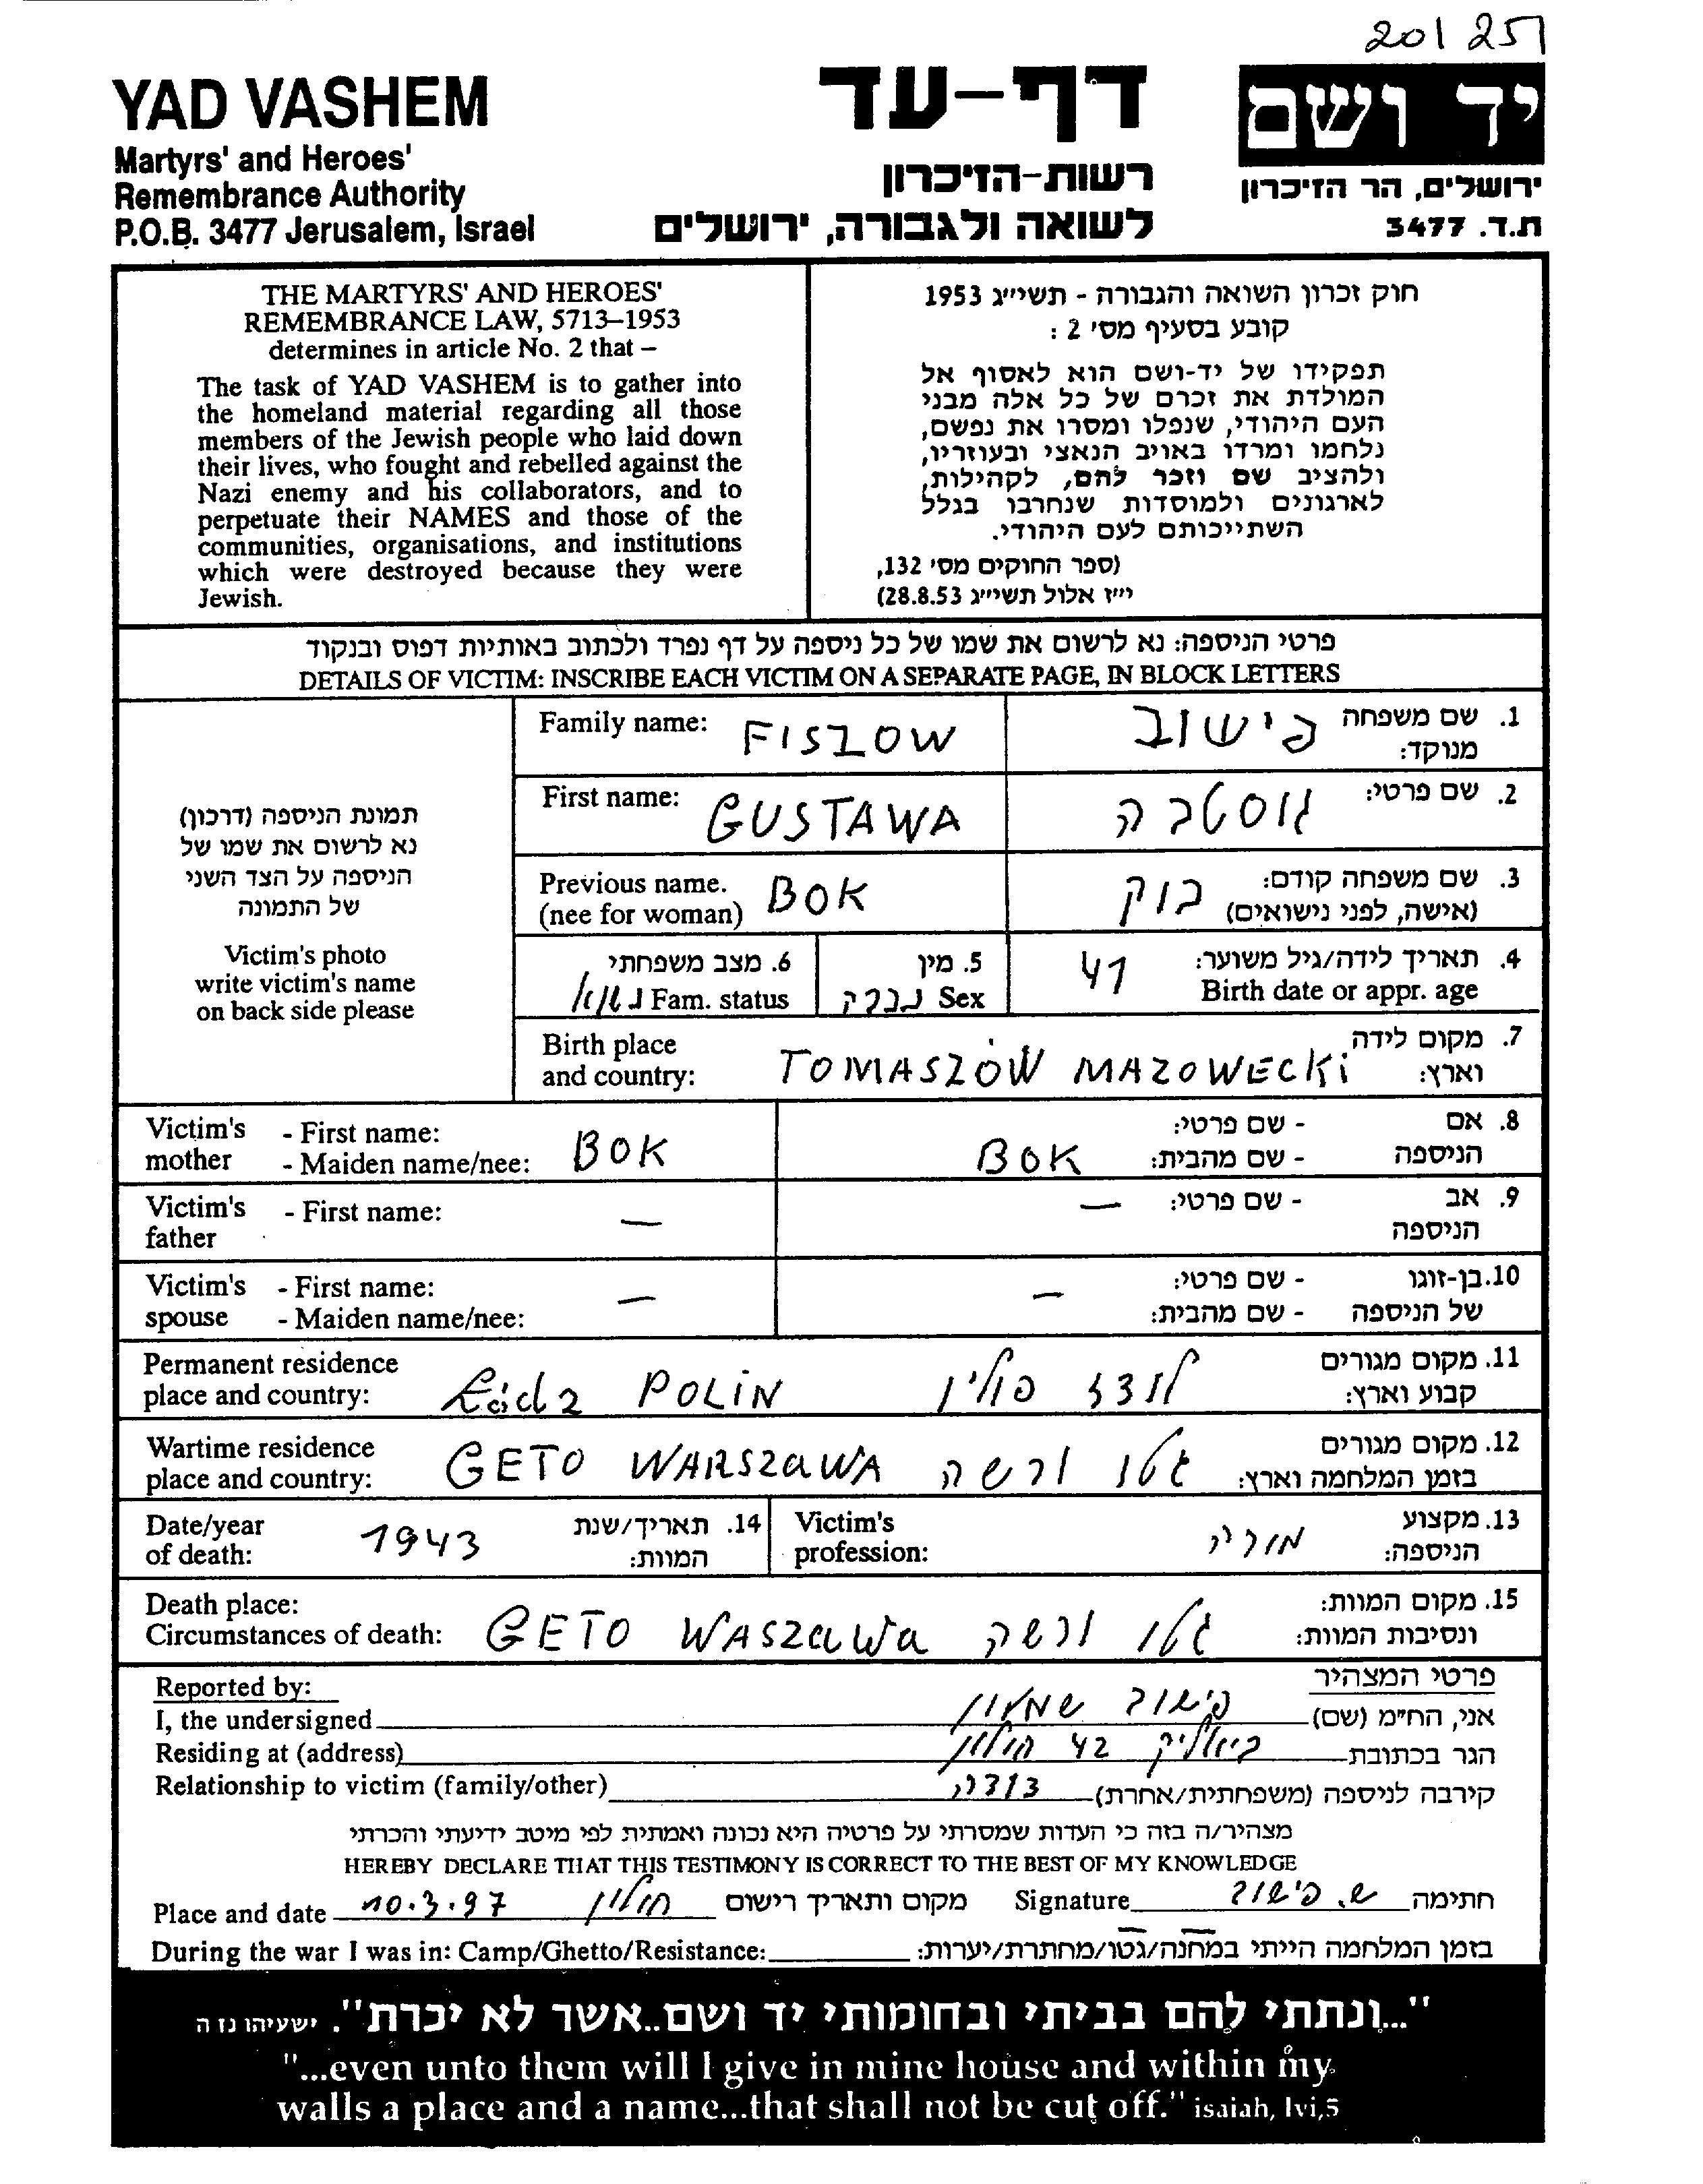 20125
YAD VASHEM
Martyrs' and Heroes'
Remembrance Authority
P.O.B. 3477 Jerusalem, Israel
דף-עד
רשות-הזיכרון
לשואה ולגבורה, ירושלים
יד ושם
ירושלים, הר הזיכרון
ת.ד. 3477
THE MARTYRS' AND HEROES'
REMEMBRANCE LAW, 5713–1953
determines in article No. 2 that –
The task of YAD VASHEM is to gather into
the homeland material regarding all those
members of the Jewish people who laid down
their lives, who fought and rebelled against the
Nazi enemy and his collaborators, and to
perpetuate their NAMES and those of the
communities, organisations, and institutions
which were destroyed because they were
Jewish.
חוק זכרון השואה והגבורה - תשי״ג 1953
קובע בסעיף מס׳ 2 :
תפקידו של יד-ושם הוא לאסוף אל
המולדת את זכרם של כל אלה מבני
העם היהודי, שנפלו ומסרו את נפשם,
נלחמו ומרדו באויב הנאצי ובעוזריו,
ולהציב שם וזכר להם, לקהילות,
לארגונים ולמוסדות שנחרבו בגלל
השתייכותם לעם היהודי.
(ספר החוקים מס׳ 132,
י״ז אלול תשי״ג 28.8.53)
פרטי הניספה: נא לרשום את שמו של כל ניספה על דף נפרד ולכתוב באותיות דפוס ובנקוד
DETAILS OF VICTIM: INSCRIBE EACH VICTIM ON A SEPARATE PAGE, IN BLOCK LETTERS
תמונת הניספה (דרכון)
נא לרשום את שמו של
הניספה על הצד השני
של התמונה
Victim's photo
write victim's name
on back side please
Family name: FISZOW פישוב 1. שם משפחה
מנוקד:
First name: GUSTAWA גוסטבה 2. שם פרטי:
Previous name. BOK בוק 3. שם משפחה קודם:
(nee for woman) (אישה, לפני נישואים)
6. מצב משפחתי 5. מין 41 4. תאריך לידה/גיל משוער:
נשוא Fam. status נקבה Sex Birth date or appr. age
Birth place 7. מקום לידה
and country: TOMASZÓW MAZOWECKi וארץ:
Victim's - First name: - שם פרטי: 8. אם
mother - Maiden name/nee: BOK BOK - שם מהבית: הניספה
Victim's - First name: — — - שם פרטי: 9. אב
father הניספה
Victim's - First name: — — - שם פרטי: 10. בן-זוגו
spouse - Maiden name/nee: - שם מהבית: של הניספה
Permanent residence 11. מקום מגורים
place and country: Łódz POLiN לודז פולין קבוע וארץ:
Wartime residence 12. מקום מגורים
place and country: GETO WARSZaWA גטו ורשה בזמן המלחמה וארץ:
Date/year 1943 14. תאריך/שנת Victim's מורה 13. מקצוע
of death: המוות: profession: הניספה:
Death place: 15. מקום המוות:
Circumstances of death: GETO WASZaWa גטו ורשה ונסיבות המוות:
Reported by: פרטי המצהיר
I, the undersigned פישוב שמעון אני, החי״מ (שם)
Residing at (address) ביאליק 42 חולון הגר בכתובת
Relationship to victim (family/other) דודה קירבה לניספה (משפחתית/אחרת)
מצהיר/ה בזה כי העדות שמסרתי על פרטיה היא נכונה ואמתית לפי מיטב ידיעתי והכרתי
HEREBY DECLARE THAT THIS TESTIMONY IS CORRECT TO THE BEST OF MY KNOWLEDGE
Place and date 10.3.97 חולון מקום ותאריך רישום Signature ש. פישוב חתימה
During the war I was in: Camp/Ghetto/Resistance: בזמן המלחמה הייתי במחנה/גטו/מחתרת/יערות:
"...ונתתי להם בביתי ובחומותי יד ושם..אשר לא יכרת". ישעיהו נז ה
"...even unto them will I give in mine house and within my
walls a place and a name...that shall not be cut off." isaiah, lvi,5